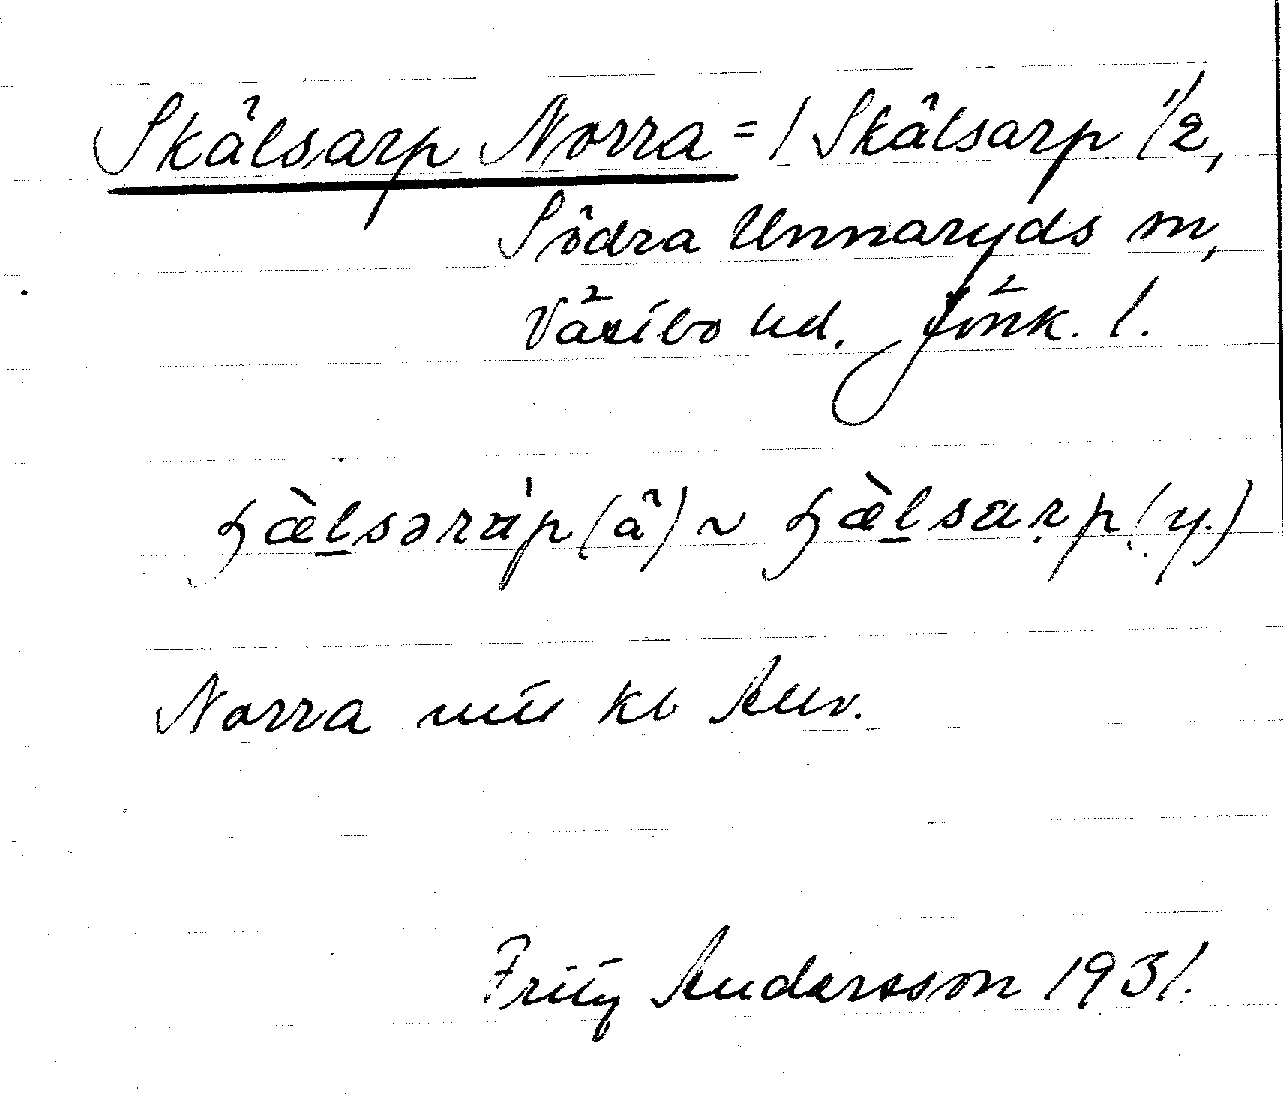 Skälsarp Norra = 1 Skälsarp 1/2,
Södra Unnaryds sn,
Västbo hd. Jönk. l.
ɧæ̀lsəráp (ä) ~ ɧæ̀lsarp (y.)
Norra
Fritz Andersson 1931.